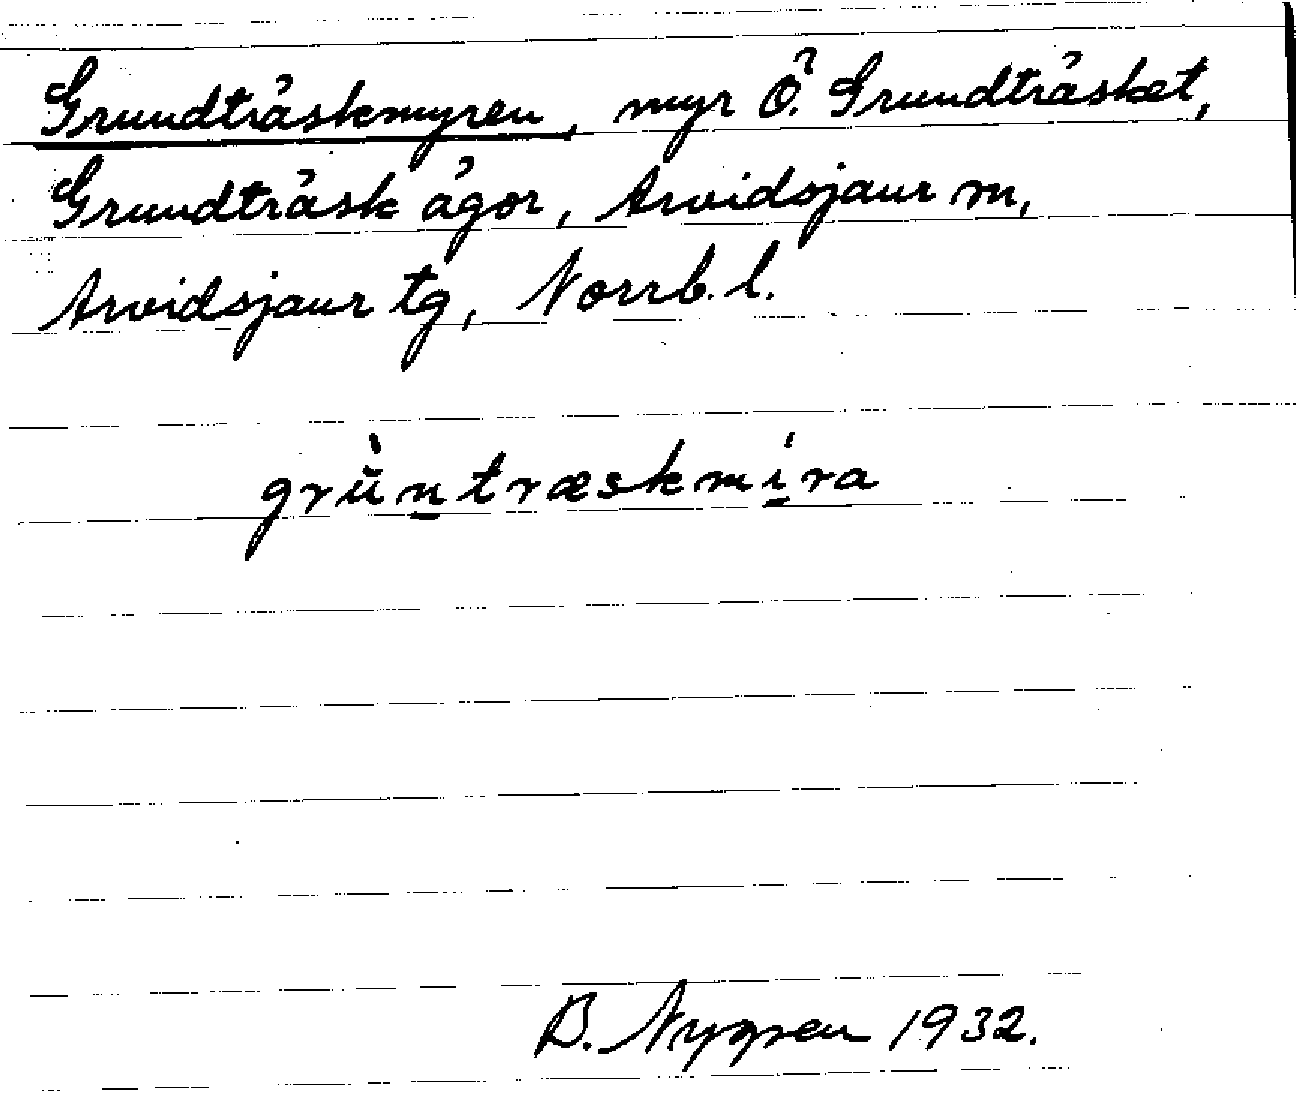 Grundträskmyren, myr Ö. Grundträsket,
Grundträsk ägor, Arvidsjaur sn,
Arvidsjaur tg, Norrb. l.
grùntræskmíra
B. Nygren 1932.